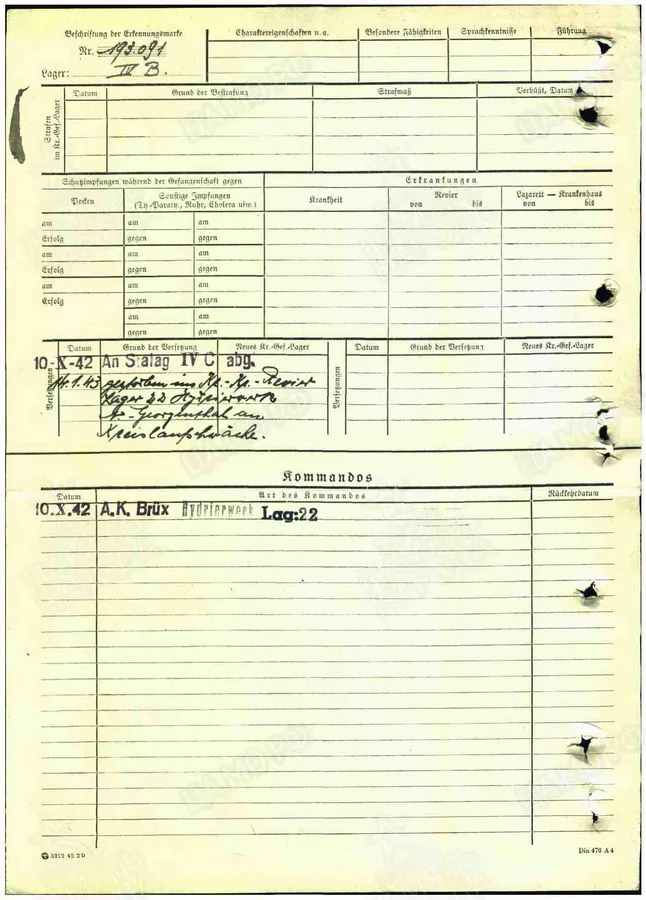 Beschriftung der Erkennungsmarke
Nr. 193.091
Lager: IV B.
Charaktereigenschaften u. a.
Besondere Fähigkeiten
Sprachkenntnisse
Führung
Strafen im Kr.-Gef.-Lager
Datum
Grund der Bestrafung
Strafmaß
Verbüßt, Datum
Schutzimpfungen während der Gefangenschaft gegen
Erkrankungen
Pocken
Sonstige Impfungen
(Ty.-Paraty., Ruhr, Cholera usw.)
Krankheit
Revier
von bis
Lazarett — Krankenhaus
von bis
am am am
Erfolg gegen gegen
am am am
Erfolg gegen gegen
am am am
Erfolg gegen gegen
am am
gegen gegen
Versetzungen
Datum
Grund der Versetzung
Neues Kr.-Gef.-Lager
Versetzungen
Datum
Grund der Versetzung
Neues Kr.-Gef.-Lager
10-X-42 An Stalag IV C abg.
14.1.43 gestorben im Kr.-Kp.-Revier
Lager 22 Hydrierwerk
Nr.-Georgenthal an
Kreislaufschwäche.
Kommandos
Datum
Art des Kommandos
Rückkehrdatum
10.X.42 A.K. Brüx Hydrierwerk Lag:22
3212 42 2D
Din 476 A 4